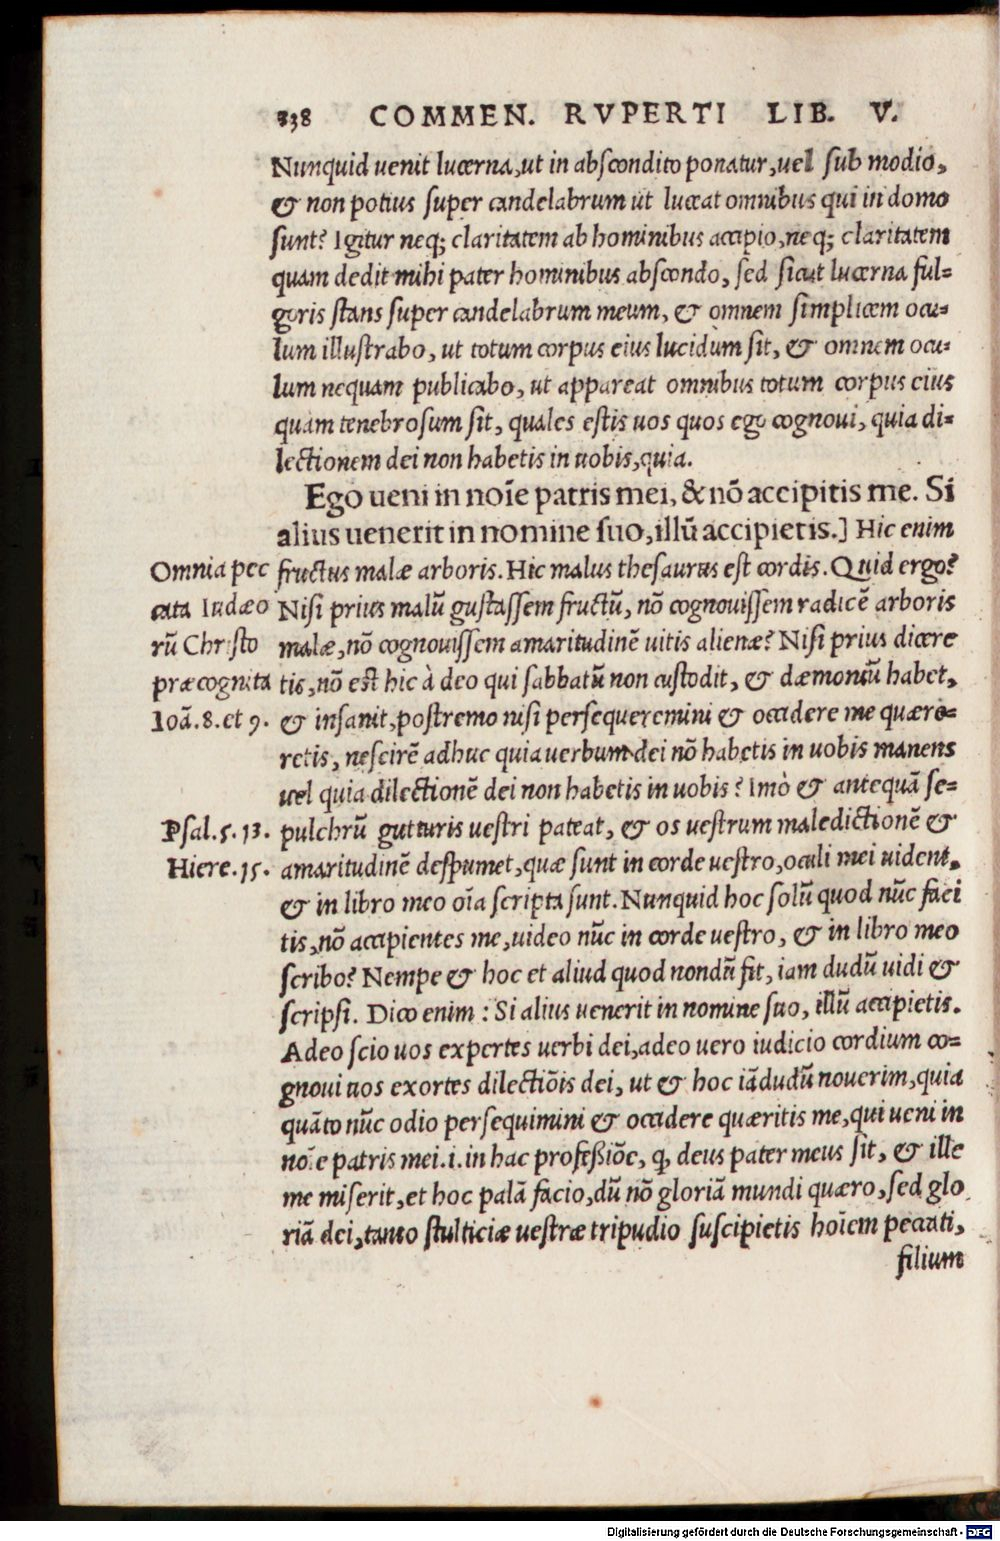 338 COMMEN. RVPERTI LIB. V.
Nunquid uenit lucerna,ut in abscondito ponatur,uel sub modio,
& non potius super candelabrum ut luceat omnibus qui in domo
sunt? Igitur neq; claritatem ab hominibus accipio,neq; claritatem
quam dedit mihi pater hominibus abscondo, sed sicut lucerna ful-
goris stans super candelabrum meum, & omnem simplicem ocu-
lum illustrabo, ut totum corpus eius lucidum sit, & omnem ocu-
lum nequam publicabo, ut appareat omnibus totum corpus eius
quam tenebrosum sit, quales estis uos quos ego cognoui, quia di-
lectionem dei non habetis in uobis,quia.
Ego ueni in noīe patris mei, & nō accipitis me. Si
alius uenerit in nomine suo, illū accipietis.] Hic enim
Omnia pec
cata Iudæo
rū Christo
præcognita
Ioā.8.et 9.
fructus malæ arboris. Hic malus thesaurus est cordis. Quid ergo?
Nisi prius malū gustassem fructū, nō cognouissem radicē arboris
malæ,nō cognouissem amaritudinē uitis alienæ? Nisi prius dicere
tis,nō est hic à deo qui sabbatū non custodit, & dæmoniū habet,
& insanit,postremo nisi persequeremini & occidere me quære-
retis, nescirē adhuc quia uerbum dei nō habetis in uobis manens
uel quia dilectionē dei non habetis in uobis? Imò & antequā se-
Psal.5.13.
Hiere.15.
pulchrū gutturis uestri pateat, & os uestrum maledictionē &
amaritudinē despumet,quæ sunt in corde uestro,oculi mei uident,
& in libro meo oīa scripta sunt. Nunquid hoc solū quod nūc faci
tis,nō accipientes me,uideo nūc in corde uestro, & in libro meo
scribo? Nempe & hoc et aliud quod nondū fit, iam dudū uidi &
scripsi. Dico enim : Si alius uenerit in nomine suo, illū accipietis.
Adeo scio uos expertes uerbi dei,adeo uero iudicio cordium co-
gnoui uos exortes dilectiōis dei, ut & hoc iādudū nouerim,quia
quāto nūc odio persequimini & occidere quæritis me,qui ueni in
noīe patris mei.i.in hac professiōe, q, deus pater meus sit, & ille
me miserit,et hoc palā facio,dū nō gloriā mundi quæro,sed glo
riā dei,tanto stulticiæ uestræ tripudio suscipietis hoīem peccati,
filium
Digitalisierung gefördert durch die Deutsche Forschungsgemeinschaft - DFG